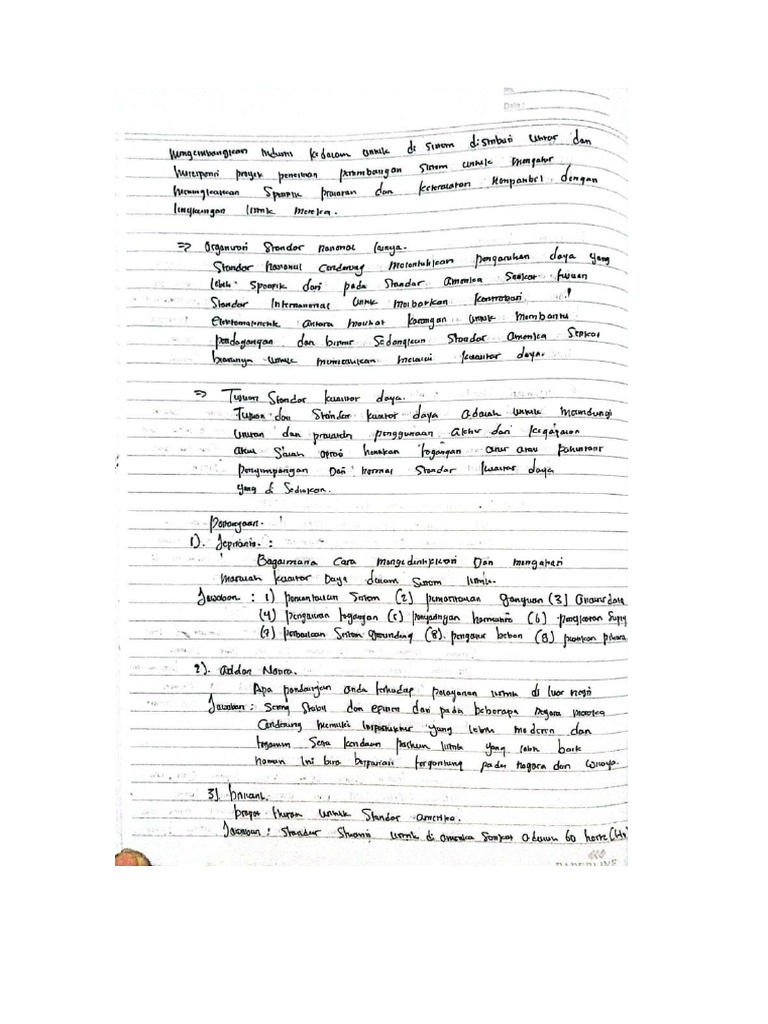 No.
Date :
mengembangkan industri kedalam untuk di sistem distribusi untuk dan
merespons proyek penelitian perkembangan sistem untuk mengatur
meningkatkan Spesifik pralatan dan keteraturan kompatibel dengan
lingkungan listrik mereka.
⇒ Organisasi Standar nasional lainya.
Standar Nasional Cenderung pengaruhan daya yang
lebih Spesifik dari pada Standar America Serikat tujuan
Standar Internasional untuk kontribusi
Elektromagnetik antara untuk membantu
perdagangan dan bisnis Sedangkan Standar America Serikat
biasanya untuk melalui kualitas daya.
⇒ Tujuan Standar kualitas daya.
Tujuan dari Standar kualitas daya adalah untuk melindungi
utilitas dan penggunaan akhir dari kegagalan
akan Salah oprasi tegangan arus atau
penyimpangan Dari normal Standar kualitas daya
yang di Sediakan.
Pertanyaan.
1). Jeprianis. :
Bagaimana Cara mengedintifikasi Dan mengatasi
masalah kualitas Daya dalam Sistem listrik.
Jawaban : 1) pemantauan Sistem (2) pemantauan gangguan (3)
(4) tegangan (5) penyaringan harmonis (6)
(7) perbaikan Sistem Grounding (8). pengatur beban (8)
2). Addan Novra.
Apa pandangan anda terhadap pelayanan listrik di luar negri
Jawaban : Sering Stabil dan efisien dari pada beberapa Negara mereka
Cenderung memiliki inspastruktur yang lebih modern dan
Serta listrik yang lebih baik
namun Ini bisa berpariasi tergantung pada Negara dan wilayah.
3).
untuk Standar amerika.
Jawaban : Standar listrik di america Serikat adalah 60 hertz (Hz)
PAPERLINE